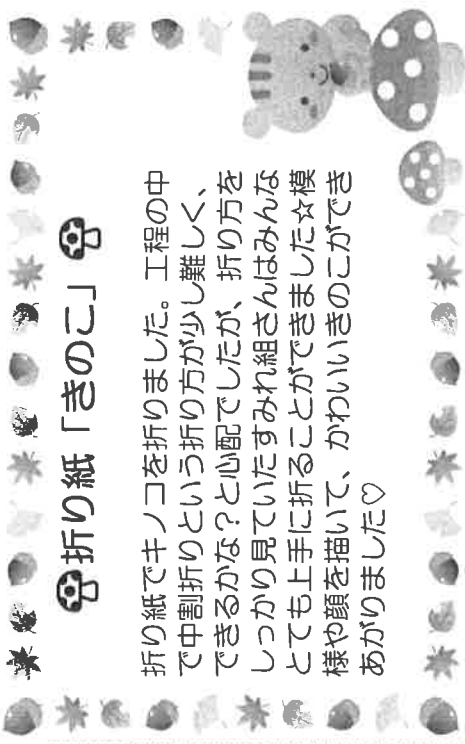 折り紙「きのこ」
折り紙でキノコを折りました。工程の中
で中割折りという折り方が少し難しく、
できるかな？と心配でしたが、折り方を
しっかり見ていたすみれ組さんはみんな
とても上手に折ることができました☆模
様や顔を描いて、かわいいきのこができ
あがりました♡